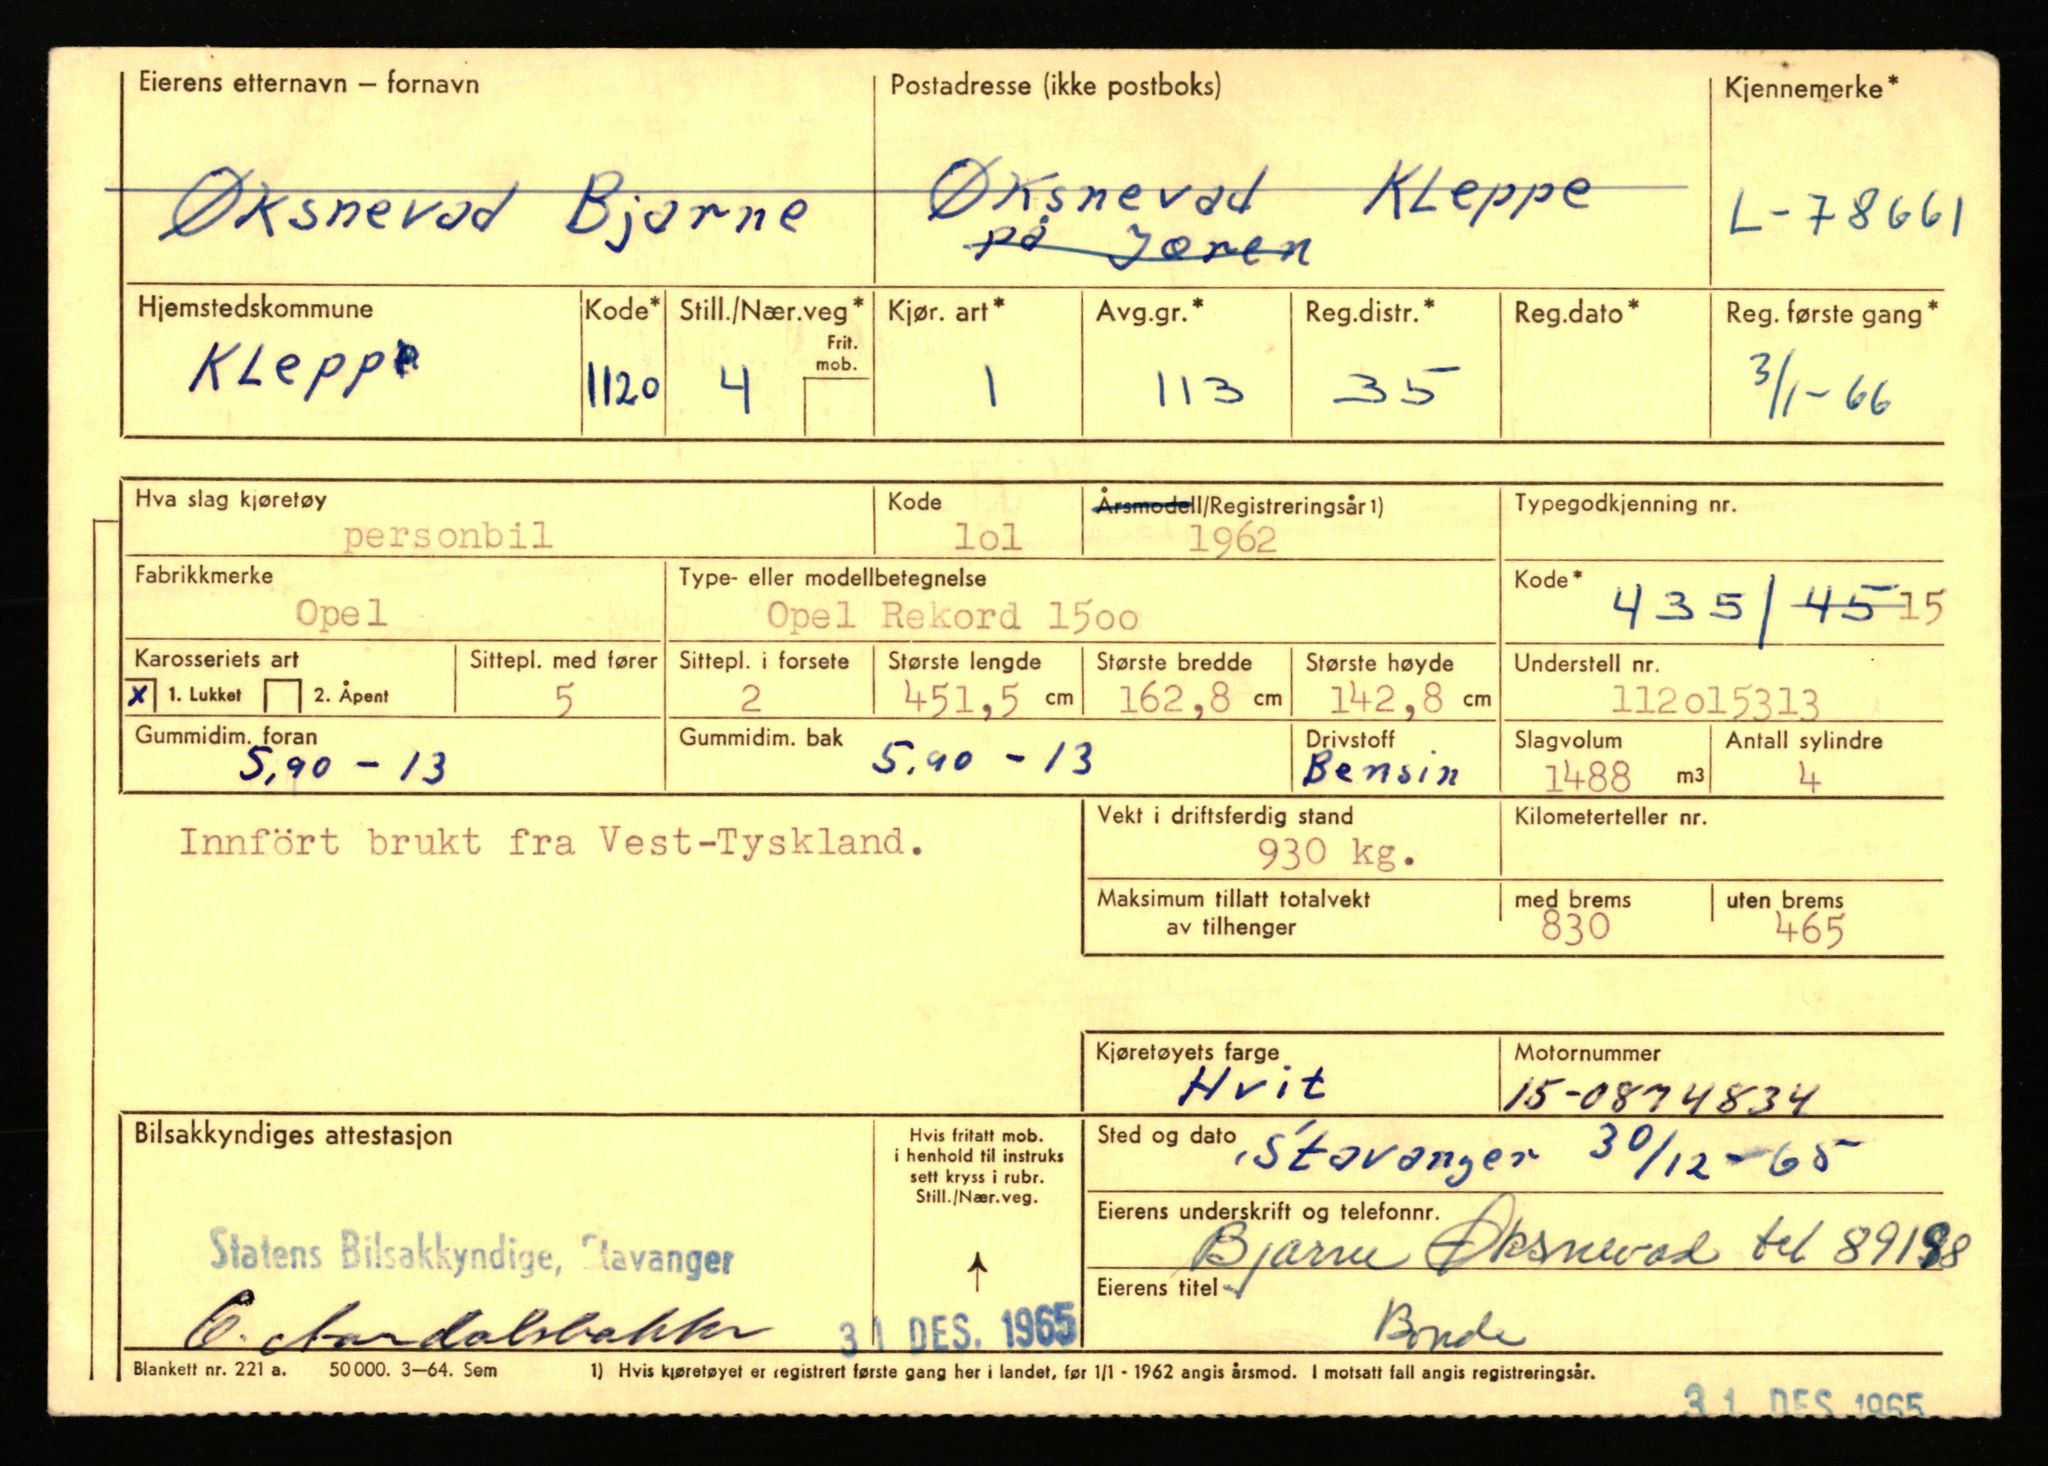 Eierens etternavn – fornavn Postadresse (ikke postboks) Kjennemerke*
Øksnevad Bjarne Øksnevad Kleppe L-78661
på Jæren
Hjemstedskommune Kode* Still./Nær.veg* Kjør. art* Avg.gr.* Reg.distr.* Reg.dato* Reg. første gang*
Frit.
mob.
Kleppe 1120 4 1 113 35 3/1-66
Hva slag kjøretøy Kode Årsmodell/Registreringsår1) Typegodkjenning nr.
personbil 1o1 1962
Fabrikkmerke Type- eller modellbetegnelse Kode*
Opel Opel Rekord 15oo 435/45 15
Karosseriets art Sittepl. med fører Sittepl. i forsete Største lengde Største bredde Største høyde Understell nr.
x 1. Lukket 2. Åpent 5 2 451,5 cm 162,8 cm 142,8 cm 112o15313
Gummidim. foran Gummidim. bak Drivstoff Slagvolum Antall sylindre
5,90 - 13 5,90 - 13 Bensin 1488 m3 4
Innfört brukt fra Vest-Tyskland.
Vekt i driftsferdig stand Kilometerteller nr.
930 kg.
Maksimum tillatt totalvekt med brems uten brems
av tilhenger 830 465
Kjøretøyets farge Motornummer
Hvit 15-0874834
Bilsakkyndiges attestasjon
Hvis fritatt mob.
i henhold til instruks
sett kryss i rubr.
Still./Nær.veg.
Sted og dato Stavanger 30/12-65
Eierens underskrift og telefonnr.
Bjarne Øksnevad tel 89198
Statens Bilsakkyndige, Stavanger
Eierens titel
Bonde
31 DES. 1965
Blankett nr. 221 a. 50 000. 3–64. Sem 1) Hvis kjøretøyet er registrert første gang her i landet, før 1/1 - 1962 angis årsmod. I motsatt fall angis registreringsår.
31 DES 1965